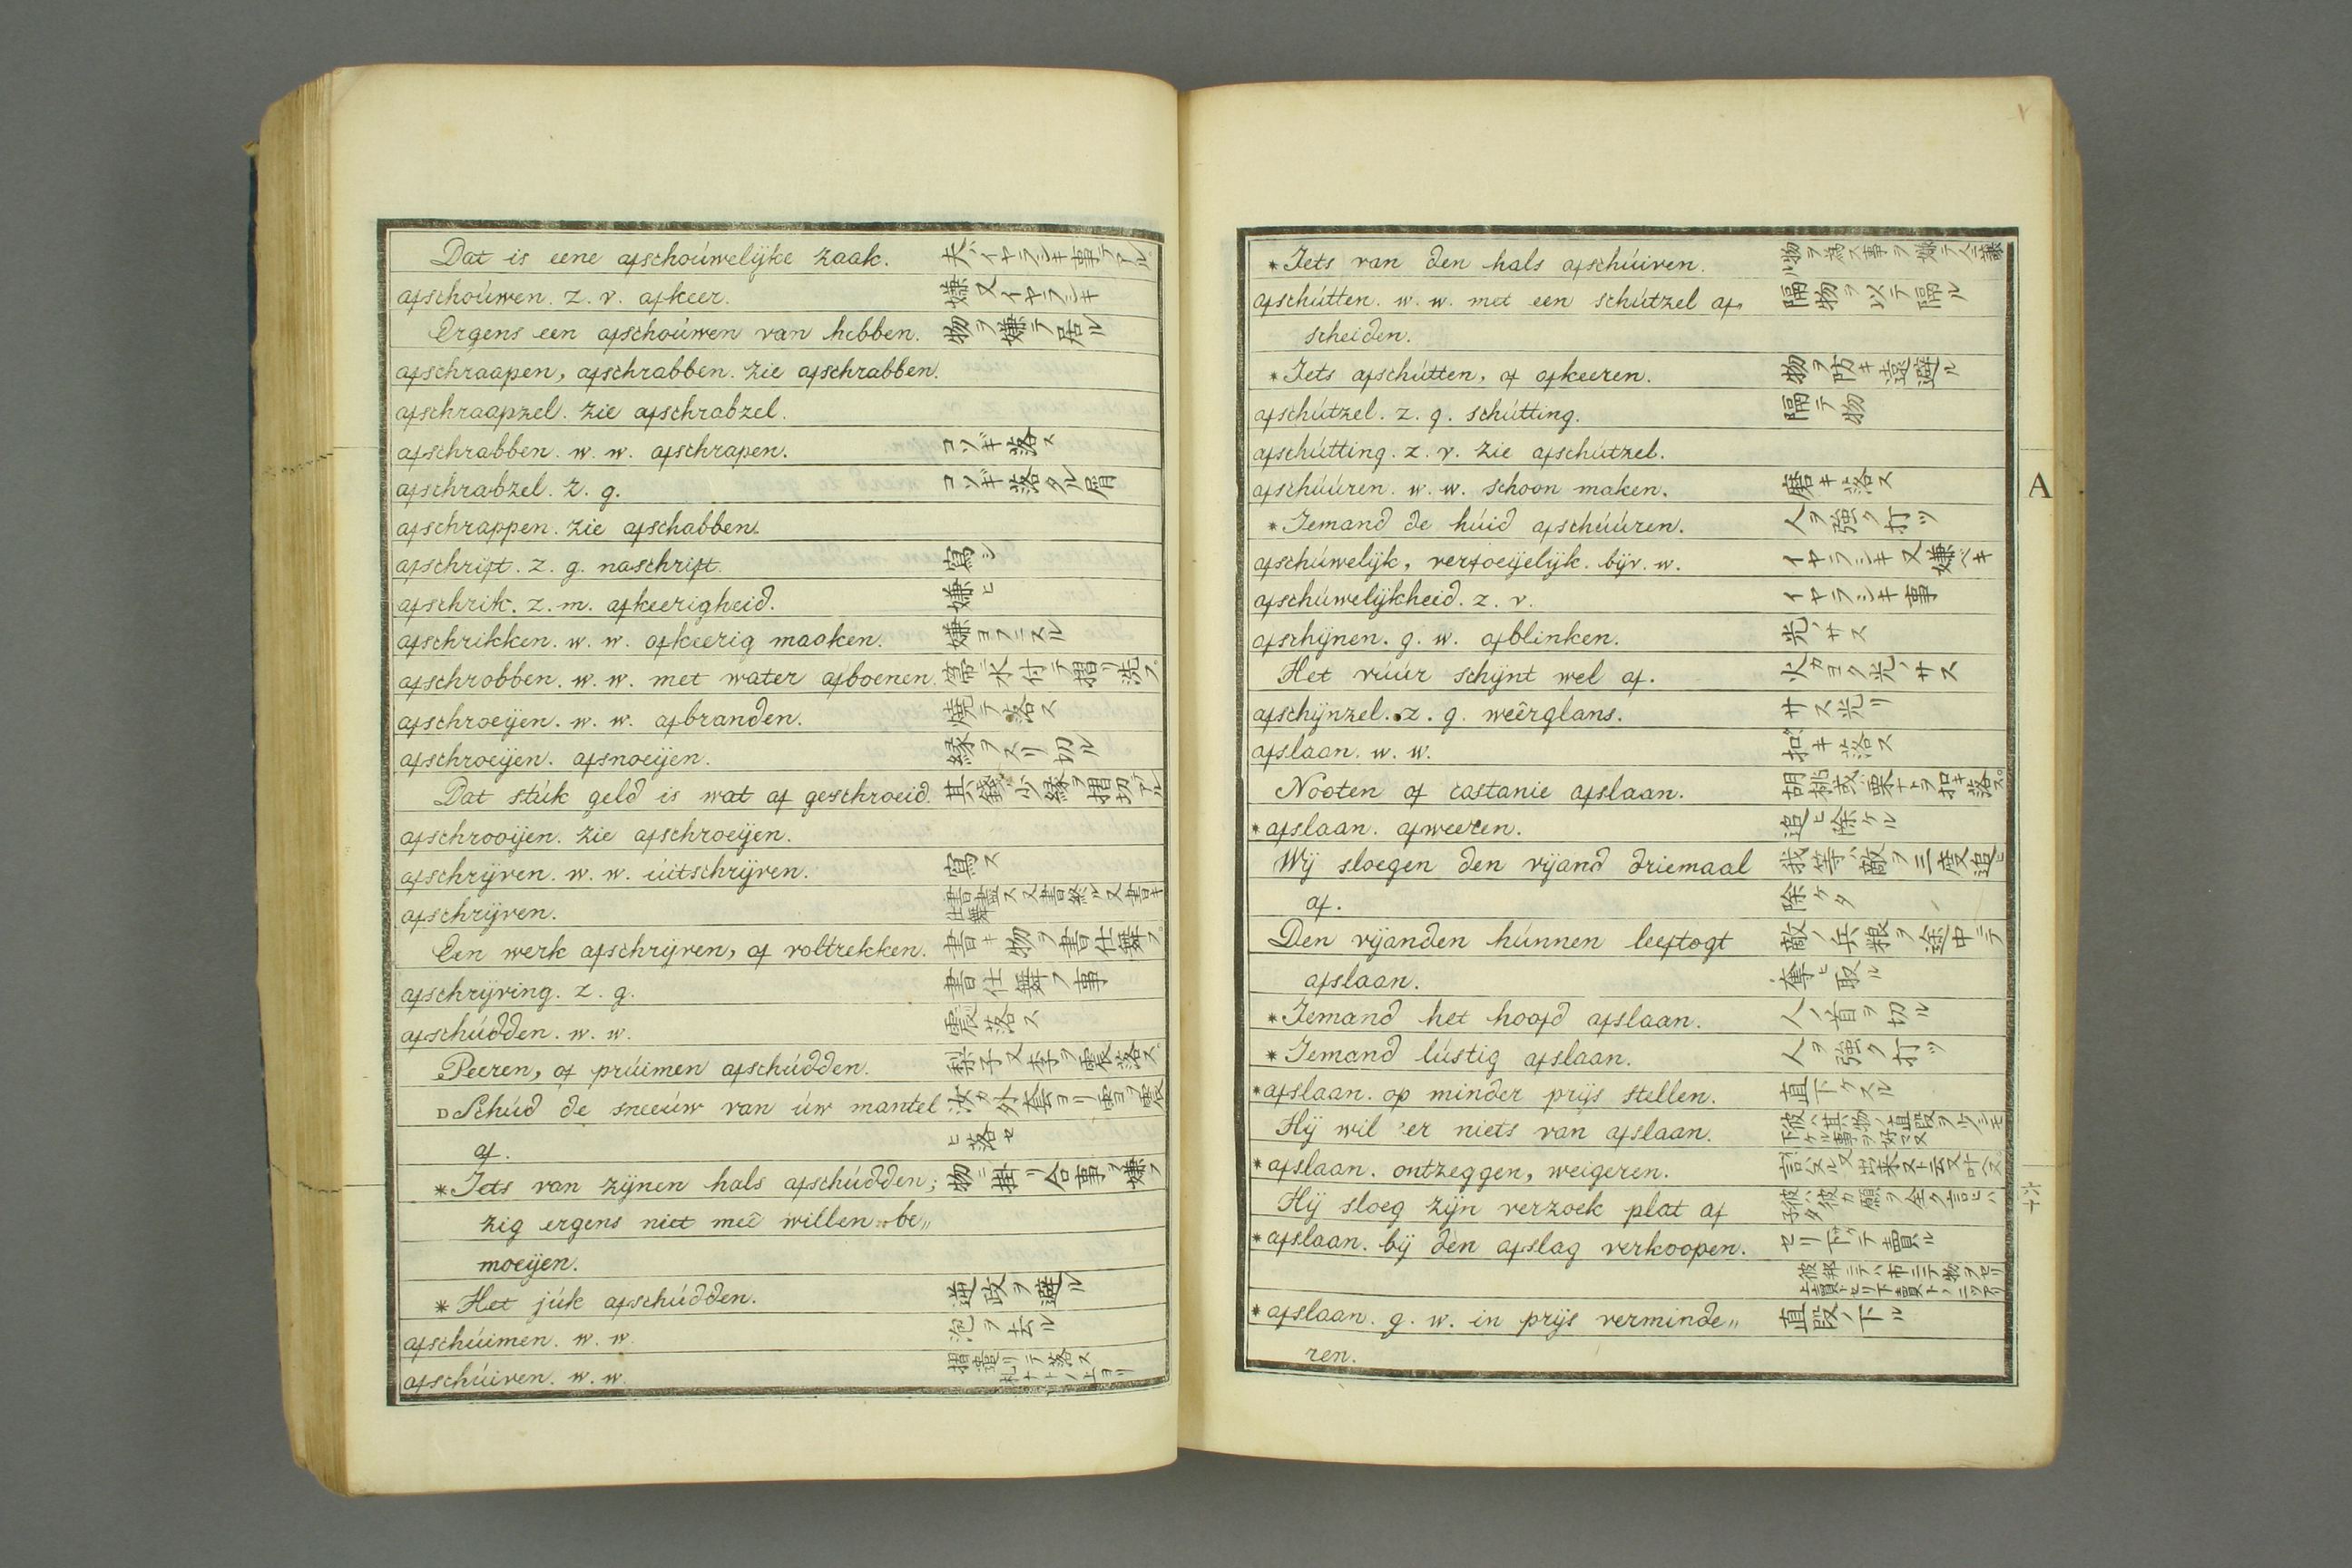 Dat is eene afschoúwelijke zaak. 夫ハイヤラシキ事テアル
afschoúwen. z. v. afkeer. 嫌又イヤラシキ
Ergens een afschoúwen van hebben. 物ヲ嫌テ居ル
afschraapen, afschrabben. zie afschrabben.
afschraapzel. zie afschrabzel.
afschrabben. w. w. afschrapen. コソギ落ス
afschrabzel. z. g. コソギ落タル屑
afschrappen. zie afschabben.
afschrift. z. g. naschrift. 寫シ
afschrik. z. m. afkeerigheid. 嫌ヒ
afschrikken. w. w. afkeerig maaken. 嫌ヨフニスル
afschrobben. w. w. met water afboenen. 箒ニ水付テ摺リ洗フ
afschroeijen. w. w. afbranden. 焼テ落ス
afschroeijen. afsnoeijen. 縁ヲスリ切ル
Dat stúk geld is wat af geschroeid. 其錢ハ少縁ヲ摺切テアル
afschrooijen. zie afschroeijen.
afschrijven. w. w. úitschrijven. 寫ス
afschrijven. 書盡ス又書終ル又書キ仕舞
Een werk afschrijven, of voltrekken. 書キ物ヲ書仕舞フ
afschrijving. z. g. 書仕舞フ事
afschúdden. w. w. 震落ス
Peeren, of prúimen afschúdden. 梨子又李ヲ震落ス
D Schúd de sneeúw van úw mantel 汝カ外套ヨリ雪ヲ震
af. ヒ落セ
* Iets van zijnen hals afschúdden; 物ニ掛リ合事ヲ嫌フ
zig ergens niet meê willen be„
moeijen.
* Het júk afschúdden. 逆政ヲ避ル
afschúimen. w. w. 泡ヲ去ル
afschúiven. w. w.
* Iets van den hals afschúiven.
afschútten. w. w. met een schútzel af 隔物ヲ以テ隔ル
scheiden.
* Iets afschútten, of afkeeren. 物ヲ防キ遠避ル
afschútzel. z. g. schútting. 隔テ物
afschútting. z. v. zie afschútzel.
afschúúren. w. w. schoon maken. 磨キ落ス
* Iemand de húid afschúúren. 人ヲ強ク打ツ
afschúwelijk, verfoeijelijk. bijv. w. イヤラシキ又嫌ベキ
afschúwelijkheid. z. v. イヤラシキ事
afschijnen. g. w. afblinken. 光ノサス
Het vúúr schijnt wel af. 火カヨク光ノサス
afschijnzel. z. g. weêrglans. サス光リ
afslaan. w. w. 扣キ落ス
Nooten of castanie afslaan. 胡桃或栗ナトヲ扣キ落ス
* afslaan. afweeren. 追ヒ除ケル
Wij sloegen den vijand driemaal 我等ハ敵ヲ三度追ヒ
af. 除ケタ
Den vijanden húnnen leeftogt 敵ノ兵粮ヲ途中ニテ
afslaan. 奪ヒ取ル
* Iemand het hoofd afslaan. 人ノ首ヲ切ル
* Iemand lústig afslaan. 人ヲ強ク打ツ
* afslaan. op minder prijs stellen. 直下ケスル
Hij wil 'er niets van afslaan. 彼ハ其物ノ直段ヲ少シモ下ケル事ヲ好マヌ
* afslaan. ontzeggen, weigeren.
Hij sloeg zijn verzoek plat af 彼ハ彼カ願ヲ全ク言ヒハ子タ
* afslaan. bij den afslag verkoopen. セリ下ケテ賣ル
彼邦ニテハ市ニテ物ヲセリ上賣トセリ下賣トノ二ツアリ
* afslaan. g. w. in prijs verminde„ 直段ノ下ル
ren.
A